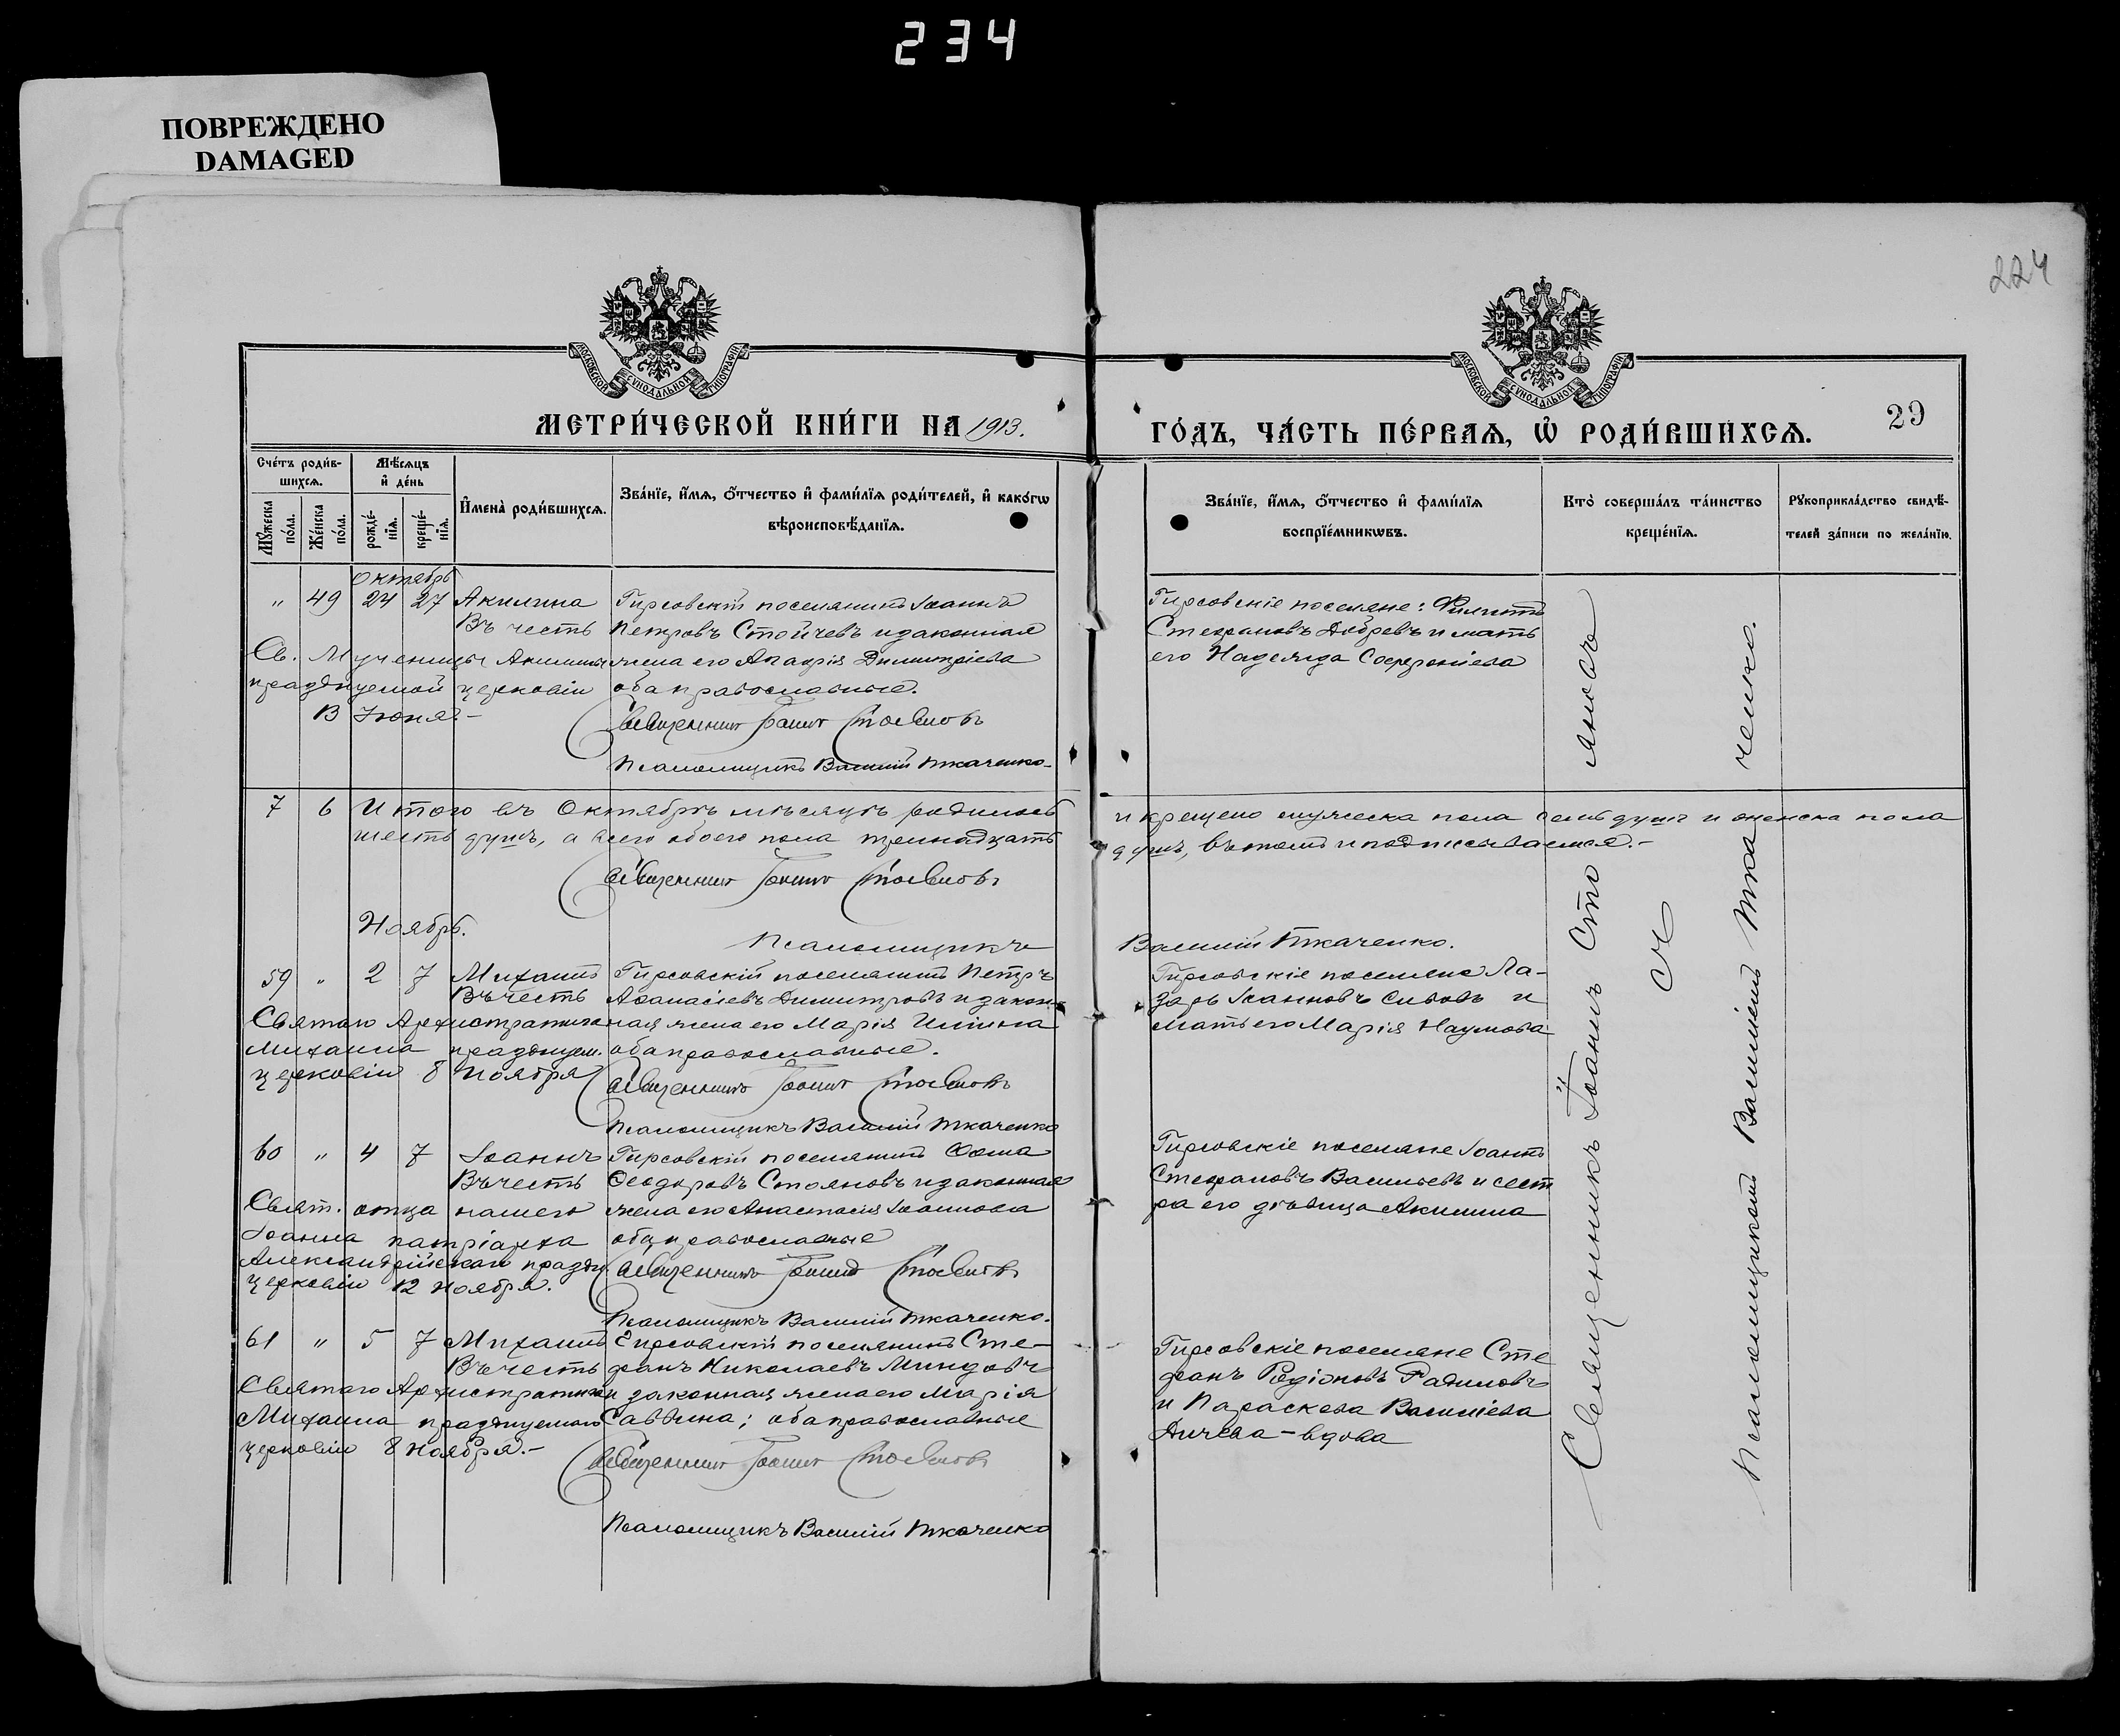 234
ПОВРЕЖДЕНО
DAMAGED
224
МОСКОВСКОЙ СѴНОДАЛЬНОЙ ТИПОГРАФІИ
МОСКОВСКОЙ СѴНОДАЛЬНОЙ ТИПОГРАФІИ
МЕТРИ́ЧЕСКОЙ КНИ́ГИ НА 1913.
ГО́ДЪ, ЧА́СТЬ ПЕ́РВАѦ, Ѡ҆ РОДИ́ВШИХСѦ.
29
Сче́тъ роди́в-
шихсѧ.
Мꙋ́жеска
по́ла.
Же́нска
по́ла.
Мѣ́сѧцъ
и҆ де́нь
рожде́-
нїѧ.
креще́-
нїѧ.
И҆мена̀ роди́вшихсѧ.
Зва́нїе, и҆́мѧ, ѻ҆́тчество и҆ фами́лїѧ роди́телей, и҆ како́гѡ
вѣроисповѣ́данїѧ.
Зва́нїе, и҆́мѧ, ѻ҆́тчество и҆ фами́лїѧ
воспрїе́мникѡвъ.
Кто̀ соверша́лъ та́инство
креще́нїѧ.
Рꙋкоприкла́дство свидѣ́-
телей за́писи по жела́нїю.
Октябрь
" 49 24 27 Акилина
Въ честь
Св. Мученицы Акилины
празднуемой церковію
13 Іюня.-
Гирсовскій поселянинъ Іоаннъ
Петровъ Стойчевъ и законная
жена его Агафія Димитріева
оба православные.
Священникъ Іоаннъ Стояновъ
Псаломщикъ Василій Ткаченко
Гирсовскіе поселяне: Филиппъ
Стефановъ Добревъ и мать
его Надежда Софроніева
7 6 Итого въ Октябрѣ мѣсяцѣ родилось
и крещено мужеска пола семь душъ и женска пола
шесть душъ, а всего обоего пола тринадцать
душъ, въ томъ и подписываемся.-
Священникъ Іоаннъ Стояновъ
Псаломщикъ
Василій Ткаченко.
Ноябрь.
59 " 2 7 Михаилъ
Въ честь
Святаго Архистратига
Михаила празднуем.
церковію 8 Ноября
Гирсовскій поселянинъ Петръ
Аѳанасіевъ Димитровъ и закон-
ная жена его Марія Ильина
оба православные.
Священникъ Іоаннъ Стояновъ
Псаломщикъ Василій Ткаченко
Гирсовскіе поселяне Ла-
зарь Іоанновъ Сивовъ и
мать его Марія Наумова
60 " 4 7 Іоаннъ
Въ честь
Свят. отца нашего
Іоанна патріарха
Александрійскаго праздн.
церковію 12 Ноября.
Гирсовскій поселянинъ Ѳома
Ѳеодоровъ Стояновъ и законная
жена его Анастасія Іоаннова
оба православные
Священникъ Іоаннъ Стояновъ
Псаломщикъ Василій Ткаченко.
Гирсовскіе поселяне Іоаннъ
Стефановъ Васильевъ и сест
ра его дѣвица Акилина
61 " 5 7 Михаилъ
Въ честь
Святаго Архистратига
Михаила празднуемаго
церковію 8 Ноября.-
Гирсовскій поселянинъ Сте-
фанъ Николаевъ Миндовъ
и законная жена его Марія
Саввина; оба православные
Священникъ Іоаннъ Стояновъ
Псаломщикъ Василій Ткаченко
Гирсовскіе поселяне Сте
фанъ Родіоновъ Радиловъ
и Параскева Василіева
Дичева - вдова
Священникъ Іоаннъ Стояновъ
съ
Псаломщикомъ Василіемъ Ткаченко.